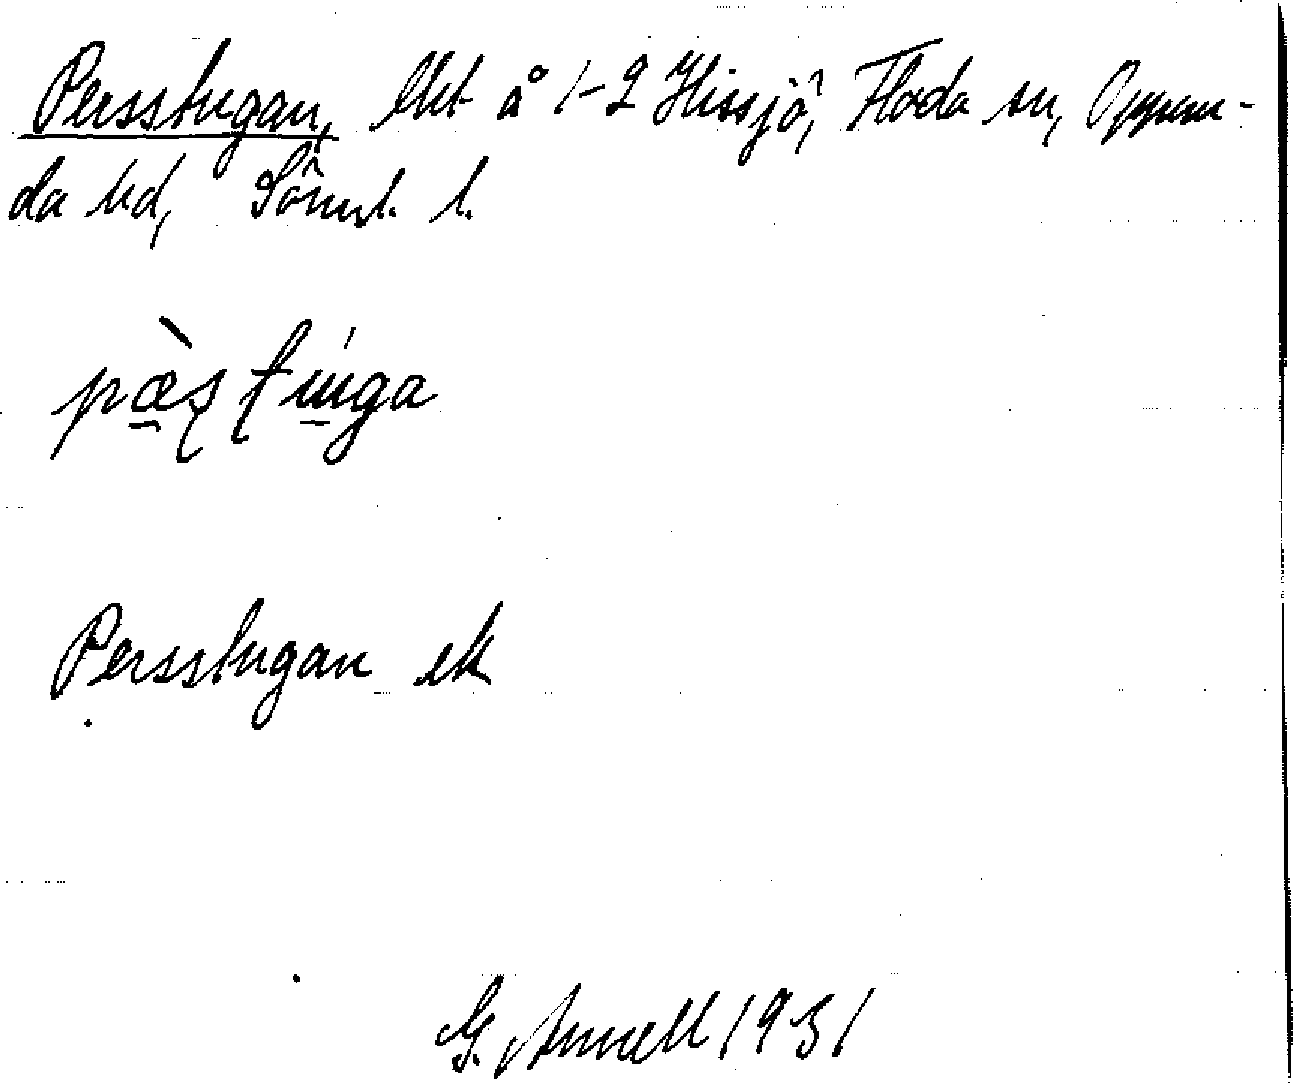 Persstugan, lht å 1-2 Hissjö, Floda sn, Oppun-
da hd, Sörml. l.
pæ̀ṣṭuga
Persstugan ek
G. Annell 1931